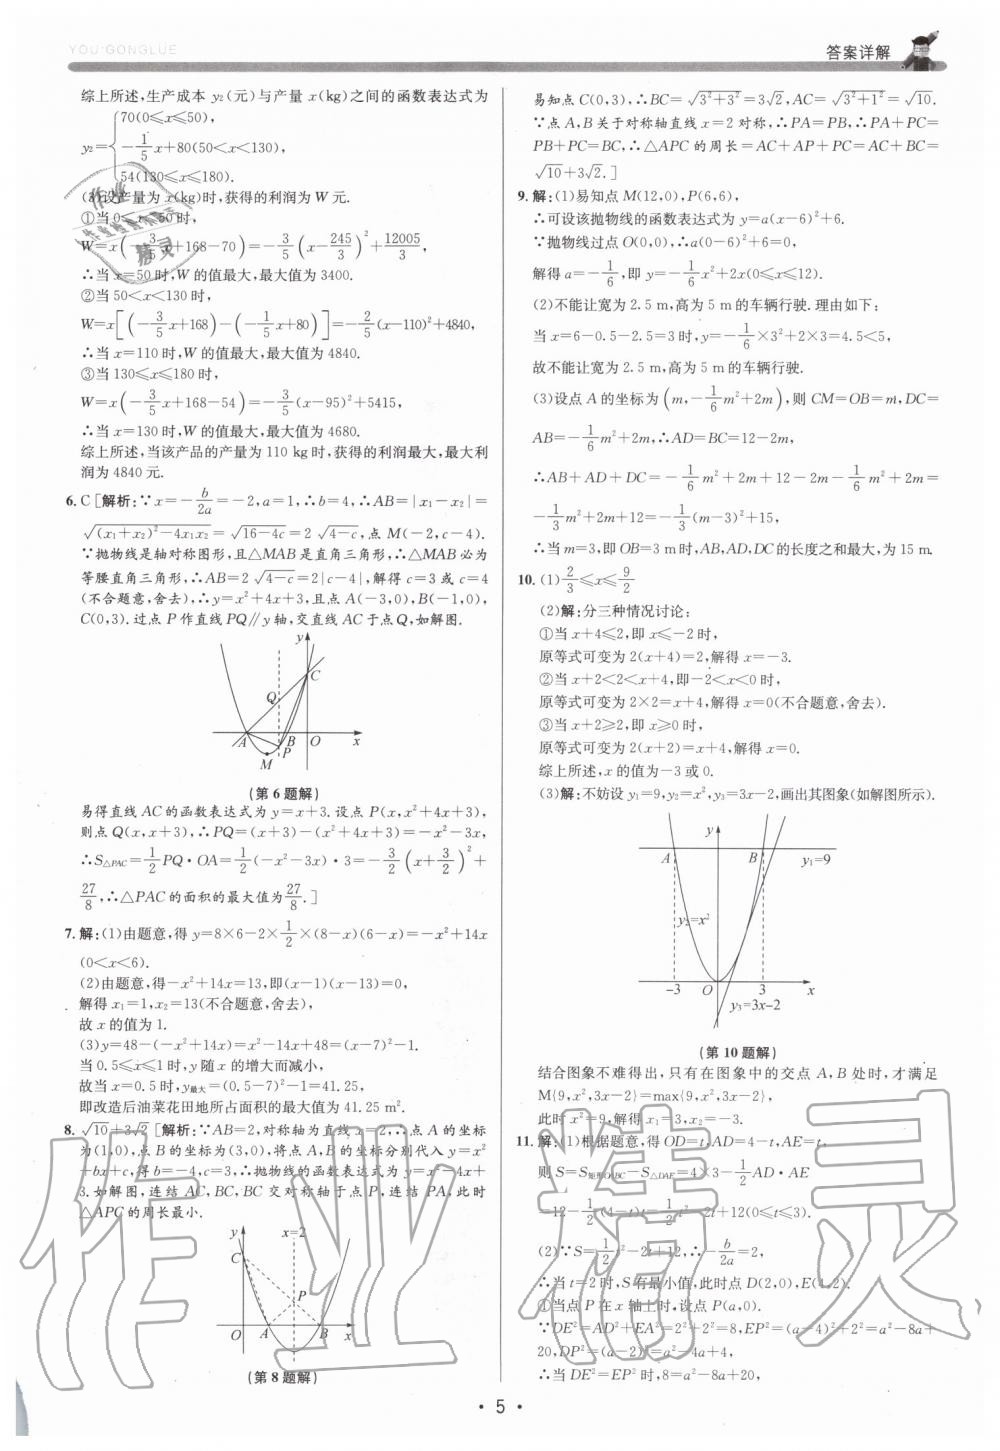 YOU·GONGLUE
答案详解
综上所述,生产成本 y₂(元)与产量 x(kg)之间的函数表达式为
y₂={70(0≤x≤50),
-1/5x+80(50<x<130),
54(130≤x≤180).
(3)设产量为 x(kg)时,获得的利润为 W 元.
①当 0≤x≤50 时,
W=x(-3/5x+168-70)=-3/5(x-245/3)²+12005/3,
∴当 x=50 时,W 的值最大,最大值为 3400.
②当 50<x<130 时,
W=x[(-3/5x+168)-(-1/5x+80)]=-2/5(x-110)²+4840,
∴当 x=110 时,W 的值最大,最大值为 4840.
③当 130≤x≤180 时,
W=x(-3/5x+168-54)=-3/5(x-95)²+5415,
∴当 x=130 时,W 的值最大,最大值为 4680.
综上所述,当该产品的产量为 110 kg 时,获得的利润最大,最大利
润为 4840 元.
6. C [解析:∵x=-b/2a=-2,a=1,∴b=4,∴AB=|x₁-x₂|=
√((x₁+x₂)²-4x₁x₂)=√(16-4c)=2√(4-c),点 M(-2,c-4).
∵抛物线是轴对称图形,且△MAB 是直角三角形,∴△MAB 必为
等腰直角三角形,∴AB=2√(4-c)=2|c-4|,解得 c=3 或 c=4
(不合题意,舍去),∴y=x²+4x+3,且点 A(-3,0),B(-1,0),
C(0,3).过点 P 作直线 PQ∥y 轴,交直线 AC 于点 Q,如解图.
y
C
Q
A B O x
P
M
(第 6 题解)
易得直线 AC 的函数表达式为 y=x+3.设点 P(x,x²+4x+3),
则点 Q(x,x+3),∴PQ=(x+3)-(x²+4x+3)=-x²-3x,
∴S△PAC=1/2PQ·OA=1/2(-x²-3x)·3=-3/2(x+3/2)²+
27/8,∴△PAC 的面积的最大值为27/8.]
7. 解:(1)由题意,得 y=8×6-2×1/2×(8-x)(6-x)=-x²+14x
(0<x<6).
(2)由题意,得-x²+14x=13,即(x-1)(x-13)=0,
解得 x₁=1,x₂=13(不合题意,舍去),
故 x 的值为 1.
(3)y=48-(-x²+14x)=x²-14x+48=(x-7)²-1.
当 0.5≤x≤1 时,y 随 x 的增大而减小,
故当 x=0.5 时,y最大=(0.5-7)²-1=41.25,
即改造后油菜花田地所占面积的最大值为 41.25 m².
8. √10+3√2 [解析:∵AB=2,对称轴为直线 x=2,∴点 A 的坐标
为(1,0),点 B 的坐标为(3,0),将点 A,B 的坐标分别代入 y=x²
+bx+c,得 b=-4,c=3,∴抛物线的函数表达式为 y=x²-4x+
3.如解图,连结 AC,BC,BC 交对称轴于点 P,连结 PA,此时
△APC 的周长最小.
y x=2
C
P
O A B x
(第 8 题解)
易知点 C(0,3),∴BC=√(3²+3²)=3√2,AC=√(3²+1²)=√10.
∵点 A,B 关于对称轴直线 x=2 对称,∴PA=PB,∴PA+PC=
PB+PC=BC,∴△APC 的周长=AC+AP+PC=AC+BC=
√10+3√2.]
9. 解:(1)易知点 M(12,0),P(6,6),
∴可设该抛物线的函数表达式为 y=a(x-6)²+6.
∵抛物线过点 O(0,0),∴a(0-6)²+6=0,
解得 a=-1/6,即 y=-1/6x²+2x(0≤x≤12).
(2)不能让宽为 2.5 m,高为 5 m 的车辆行驶.理由如下:
当 x=6-0.5-2.5=3 时,y=-1/6×3²+2×3=4.5<5,
故不能让宽为 2.5 m,高为 5 m 的车辆行驶.
(3)设点 A 的坐标为(m,-1/6m²+2m),则 CM=OB=m,DC=
AB=-1/6m²+2m,∴AD=BC=12-2m,
∴AB+AD+DC=-1/6m²+2m+12-2m-1/6m²+2m=
-1/3m²+2m+12=-1/3(m-3)²+15,
∴当 m=3,即 OB=3 m 时,AB,AD,DC 的长度之和最大,为 15 m.
10. (1)2/3≤x≤9/2
(2)解:分三种情况讨论:
①当 x+4≤2,即 x≤-2 时,
原等式可变为 2(x+4)=2,解得 x=-3.
②当 x+2<2<x+4,即-2<x<0 时,
原等式可变为 2×2=x+4,解得 x=0(不合题意,舍去).
③当 x+2≥2,即 x≥0 时,
原等式可变为 2(x+2)=x+4,解得 x=0.
综上所述,x 的值为-3 或 0.
(3)解:不妨设 y₁=9,y₂=x²,y₃=3x-2,画出其图象(如解图所示).
y
A B y₁=9
y₂=x²
-3 O 3 x
y₃=3x-2
(第 10 题解)
结合图象不难得出,只有在图象中的交点 A,B 处时,才满足
M{9,x²,3x-2}=max{9,x²,3x-2},
此时 x²=9,解得 x₁=3,x₂=-3.
11. 解:(1)根据题意,得 OD=t,AD=4-t,AE=t,
则 S=S矩形OABC-S△DAE=4×3-1/2AD·AE
=12-1/2(4-t)t=1/2t²-2t+12(0≤t≤3).
(2)∵S=1/2t²-2t+12,∴-b/2a=2,
∴当 t=2 时,S 有最小值,此时点 D(2,0),E(4,2).
①当点 P 在 x 轴上时,设点 P(a,0).
∵DE²=AD²+EA²=2²+2²=8,EP²=(a-4)²+2²=a²-8a+
20,DP²=(a-2)²=a²-4a+4,
∴当 DE²=EP² 时,8=a²-8a+20,
· 5 ·
作业精灵